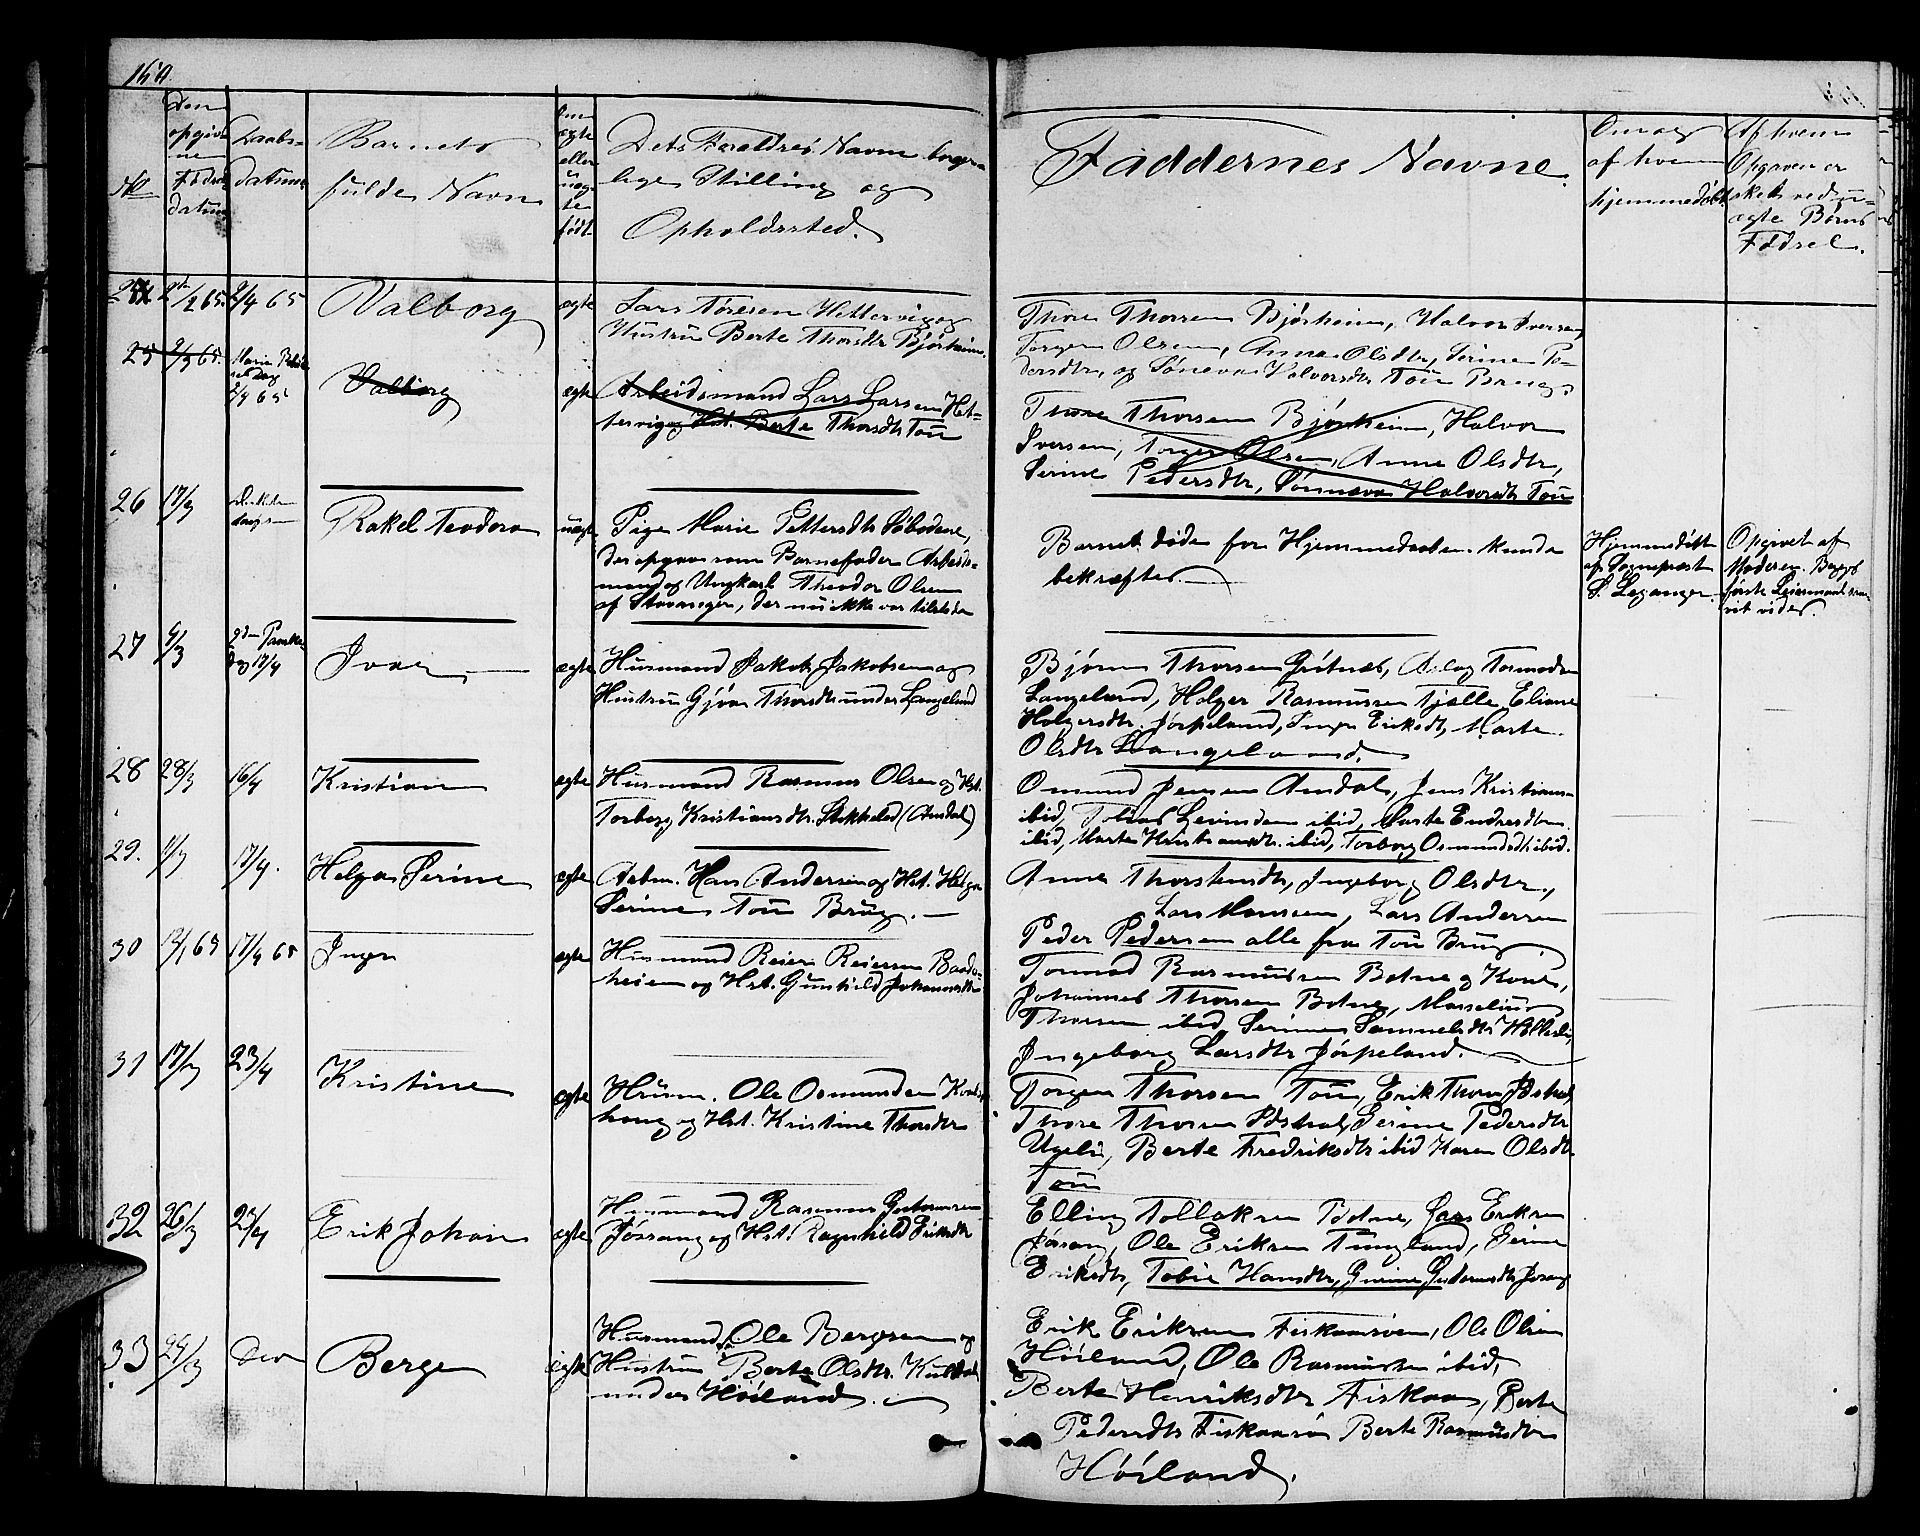 No
Den
opgiv-
ne
Fødsels
datum
Daabs-
datum
Barnets
fulde Navn
Om
ægte
eller
uæg-
te
født
Dets Forældres Navne borger-
lige Stilling og
Opholdssted.
Faddernes Navne.
Om og
af hvem
hjemmedøbt
Af hvem
Opgaven er
skeet ved u-
ægte Børns
Fødsel.
24 2/2 65 2/4 65 Valborg ægte Lars Tøresen Hettervig og
Hustru Berte Thorsdtr Bjørheim.
Thore Thorsen Bjørheim, Halvor Iversen,
Torger Olsen, Anna Olsdtr, Serine Pe-
dersdtr, og Sønneva Halvorsdtr Tou Brug.
25 2/2 65. Maria
Dag
2/4 65
Valborg ægte Arbeidsmand Lars Larsen Het-
tervig og Hst. Berte Thorsdtr Tou
Thore Thorsen Bjørheim, Halvor
Iversen, Torger Olsen, Anne Olsdtr,
Serine Pedersdtr, Sønneva Halvorsdtr Tou
26 17/3 Rakel Teodora uægte Pige Marie Pettersdtr Søbodene,
der opgav som Barnefader Arbeids-
mand og Ungkarl Theodor Olsen
af Stavanger, der nu ikke var tilstede
Barnet døde før Hjemmedaaben kunde
bekræftes.
Hjemmedøbt
af Sognepræst
S. Leganger.
Opgivet af
Moderen. Begges
første Leiermaal saa-
vit vides.
27 6/3 2den Paaske
dag 17/4
Ivar ægte Husmand Jakob Jakobsen og
Hustru Gjøa Thorsdtr under Langeland
Bjørn Thorsen Grøtnæs, Aslag Tormodsen
Langeland, Holger Rasmussen Fjælle, Eliane
Holgersdtr. Jørpeland, Inger Eriksdtr, Marte
Olsdtr Langeland.
28 28/3 16/4 Kristian ægte Husmand Rasmus Olsen og Hst.
Torborg Kristiansdtr. Stekkeled (Amdal)
Osmund Jensen Amdal, Jens Kristians-
ibid, Tobias Levindsen ibid, Marte Endresdtr
ibid, Marte Kristiansdtr. ibid, Torborg Osmundsdtr ibid.
29. 11/3 17/4. Helga Serine ægte Arbm. Hans Andersen og Hst. Helga
Serine Tou Brug.
Anne Thorstensdtr, Ingeborg Olsdtr.,
Lars Monsen, Lars Andersen
Peder Pedersen alle fra Tou Brug
30 13/1 65 17/4 65 Inger ægte Husmand Reier Reiersen Barda-
heien og Hst. Gunhild Johannesdtr
Tormod Rasmussen Botne og Kone,
Johannes Thorsen Botne, Masselius
Thorsen ibid, Serine Samuelsdtr Hølleslie,
Ingeborg Larsdtr Jørpeland.
31 17/3 23/4 Kristine ægte Husm. Ole Osmundsen
haug og Hst. Kristine Thorsdtr
Torger Thorsen Tou, Erik Thorsen Idshal,
Thore Thorsen Idshal, Serine Pedersdtr
Ugeli, Berte Fredriksdtr ibid Karen Olsdtr
Tou
32 26/3 23/4 Erik Johan ægte Husmand Rasmus Gudmunsen
Jøssang og Hst. Ragnhild Eriksdtr
Elling Tollaksen Botne, Lars Eriksen
Jøssang, Ole Eriksen Tungland, Serine
Eriksdtr, Tobie Hansdtr, Gurine Gudmundsdtr Jøssang
33 24/3 Dito Berge ægte Husmand Ole Bergesen og
Hustru Berte Olsdtr. Kuldal
under Høiland.
Erik Eriksen Fiskaaroen, Ole Olsen
Høiland, Ole Rasmussen ibid,
Berte Henriksdtr Fiskaa, Berte
Pedersdtr Fiskaarøi Berte Rasmusdtr
Høiland.